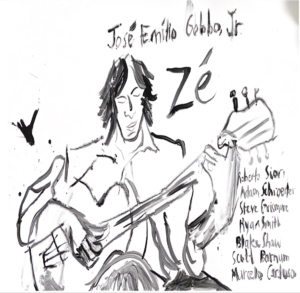 José Emílio Gobbo, Jr.
Zé
Roberto
Adson Schroeder
Steve
Ryan Smith
Blake Shaw
Scott Barnum
Marcelo Cardoso